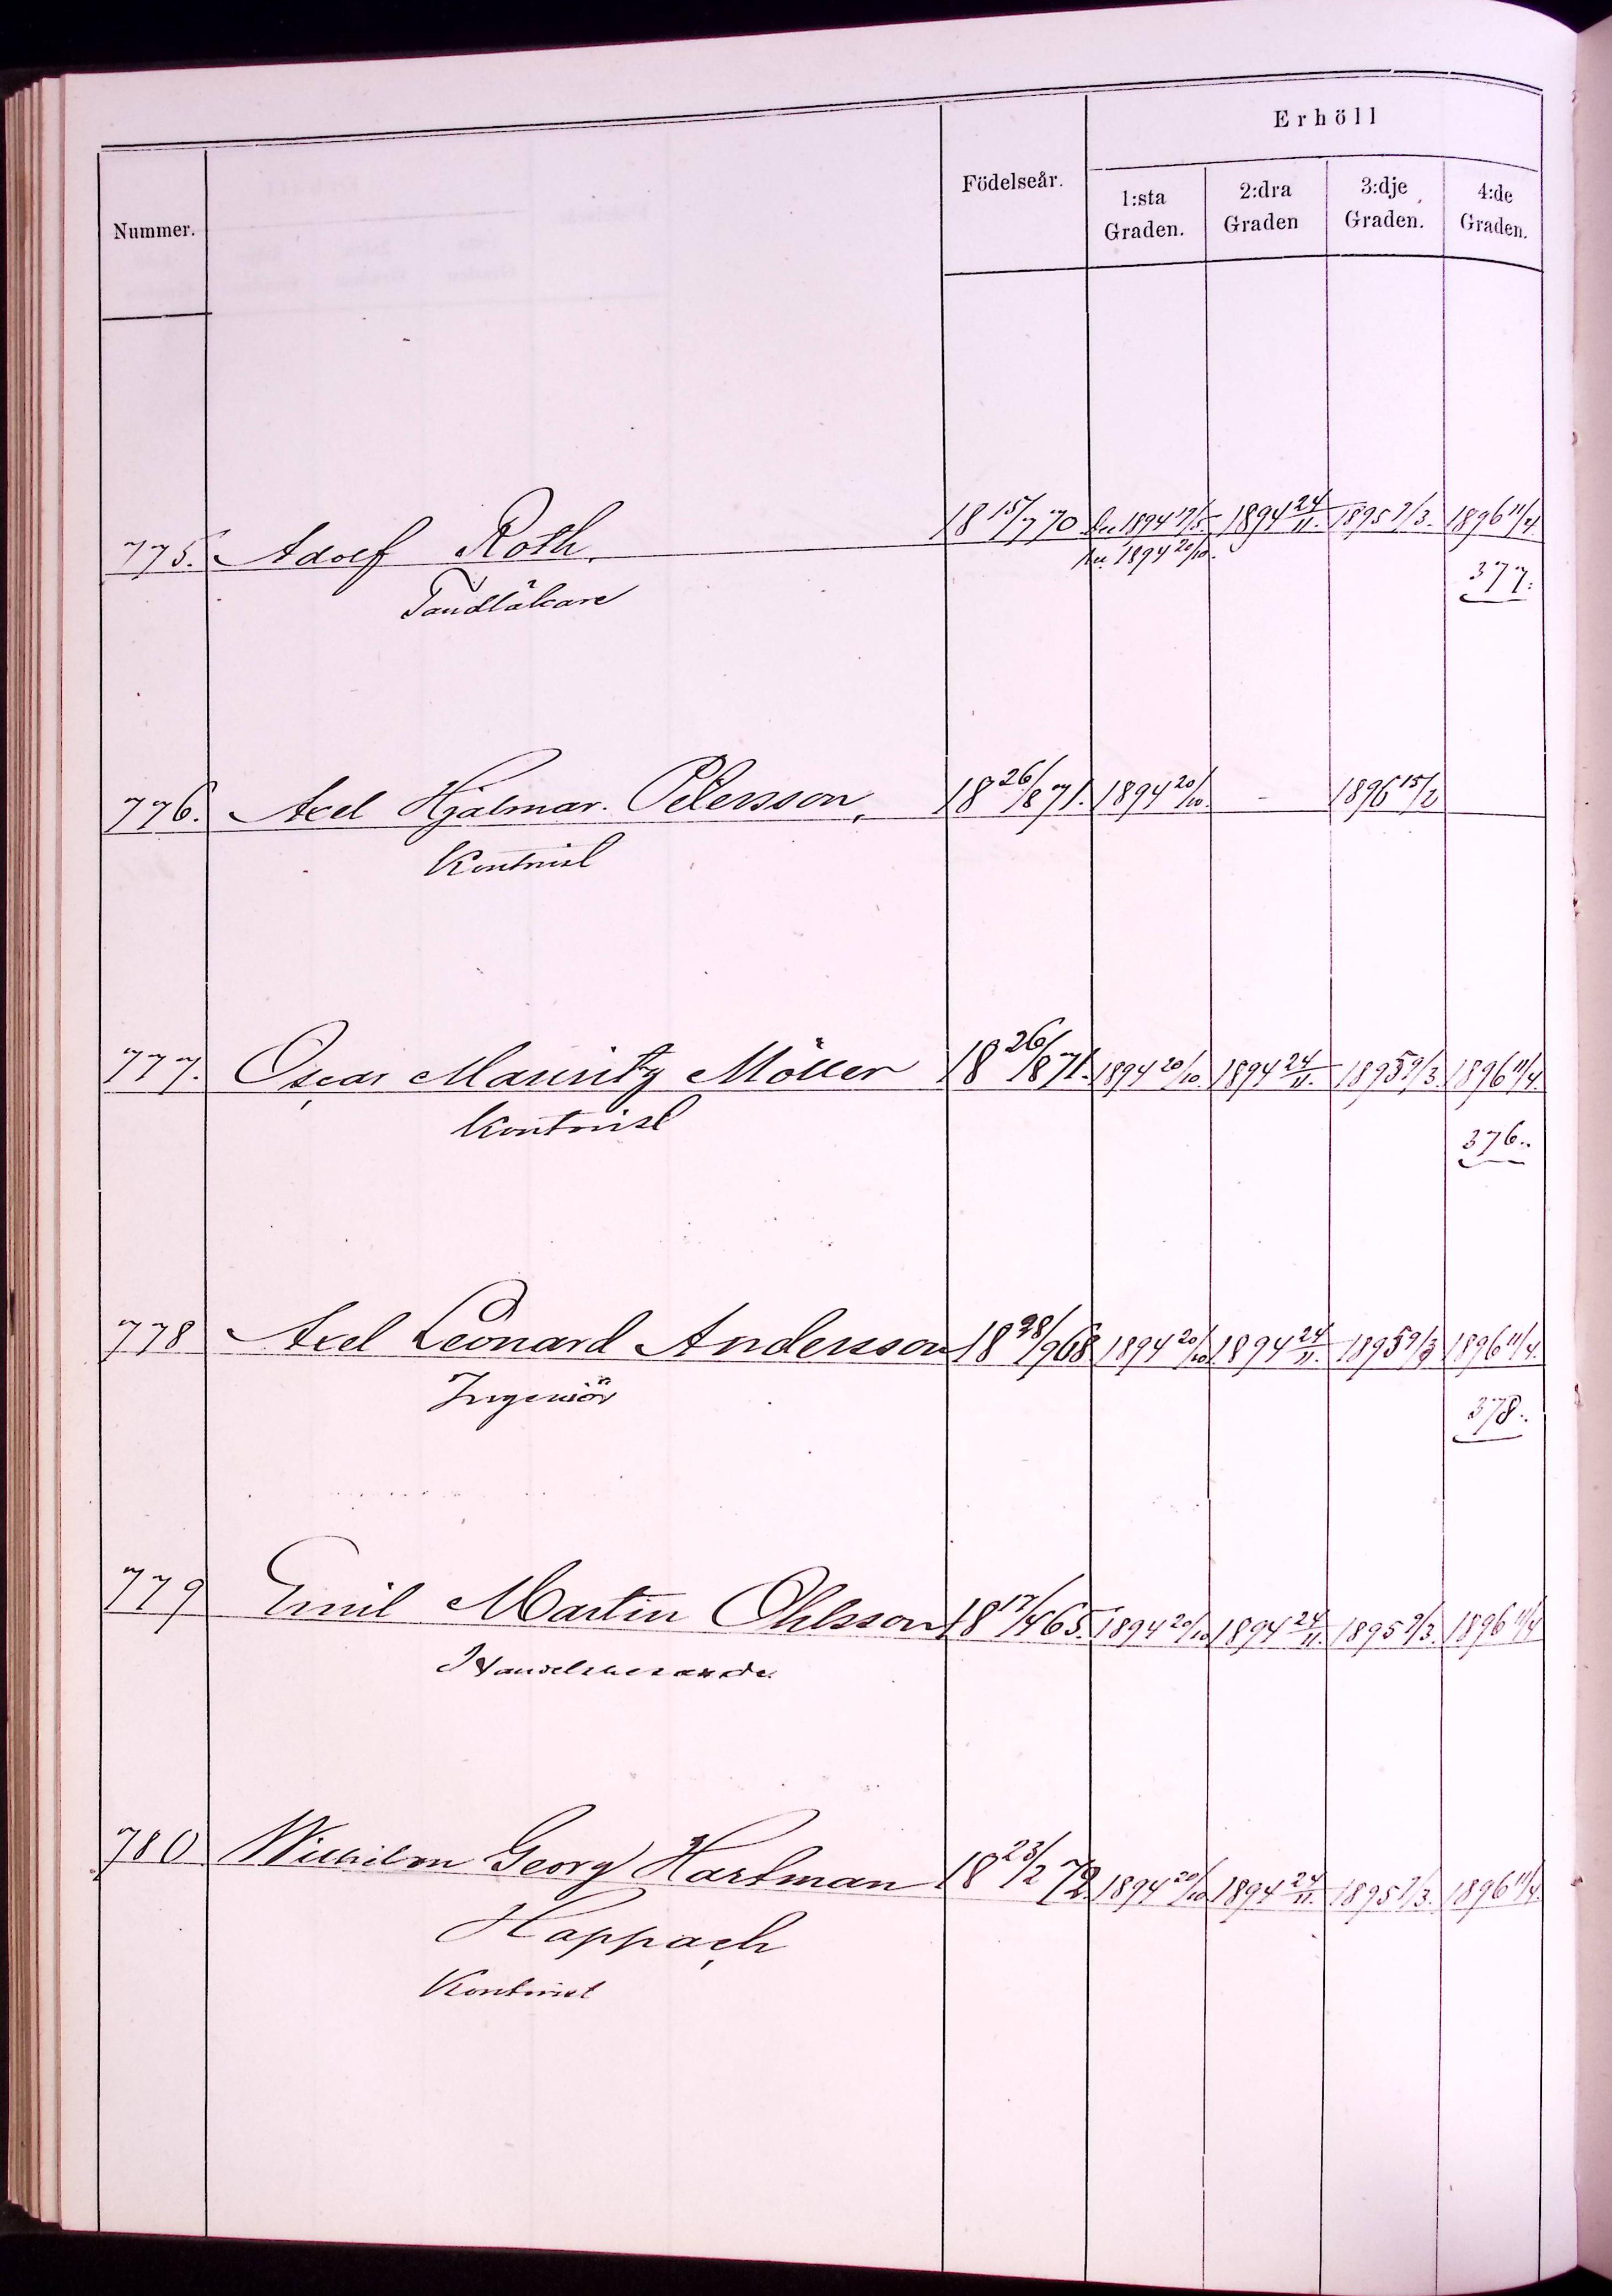 Erhöll
Nummer. Födelseår. 1:sta Graden. 2:dra Graden 3:dje Graden. 4:de Graden.
775. Adolf Roth. 18 15/7 70 1894 17/5 1894 24/11. 1895 9/3. 1896 11/4.
1894 20/10.
377.
Tandläkare
776. Axel Hjalmar Petersson, 18 26/8 71. 1894 20/10. - 1896 15/2
Kontorist
777. Oscar Mauritz Möller 18 26/8 71. 1894 20/10. 1894 24/11. 1895 9/3. 1896 11/4.
Kontorist
376.
778 Axel Leonard Andersson 18 28/9 68 1894 20/10 1894 24/11. 1895 9/3 1896 11/4.
Ingeniör
378.
779 Emil Martin Ohlsson 18 17/4 65. 1894 20/10 1894 24/11. 1895 9/3. 1896 11/4
Handelsresande
780 Wilhelm Georg Hartman 18 23/2 72. 1894 20/10 1894 24/11. 1895 9/3. 1896 11/4.
Happach
Kontorist